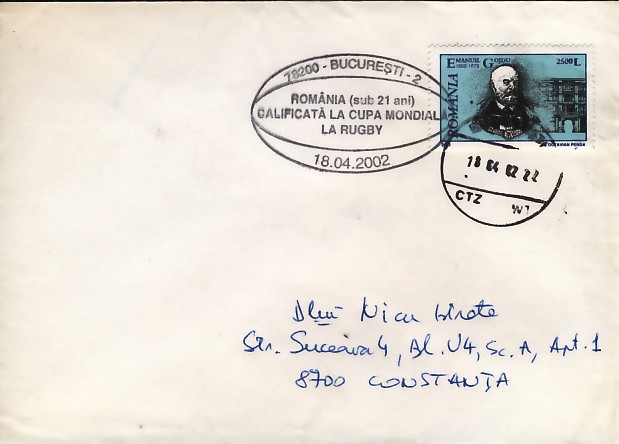 78200 - BUCUREŞTI - 2
ROMÂNIA (sub 21 ani)
CALIFICATĂ LA CUPA MONDIALĂ
LA RUGBY
18.04.2002
EMANUIL GOJDU
1802-1870
2500 L
ROMÂNIA
OCTAVIAN PENDA
18 04 02 22
CTZ
Nicu
Str. Suceava 4, Bl. V4, Sc. A, Apt. 1
8700 CONSTANŢA